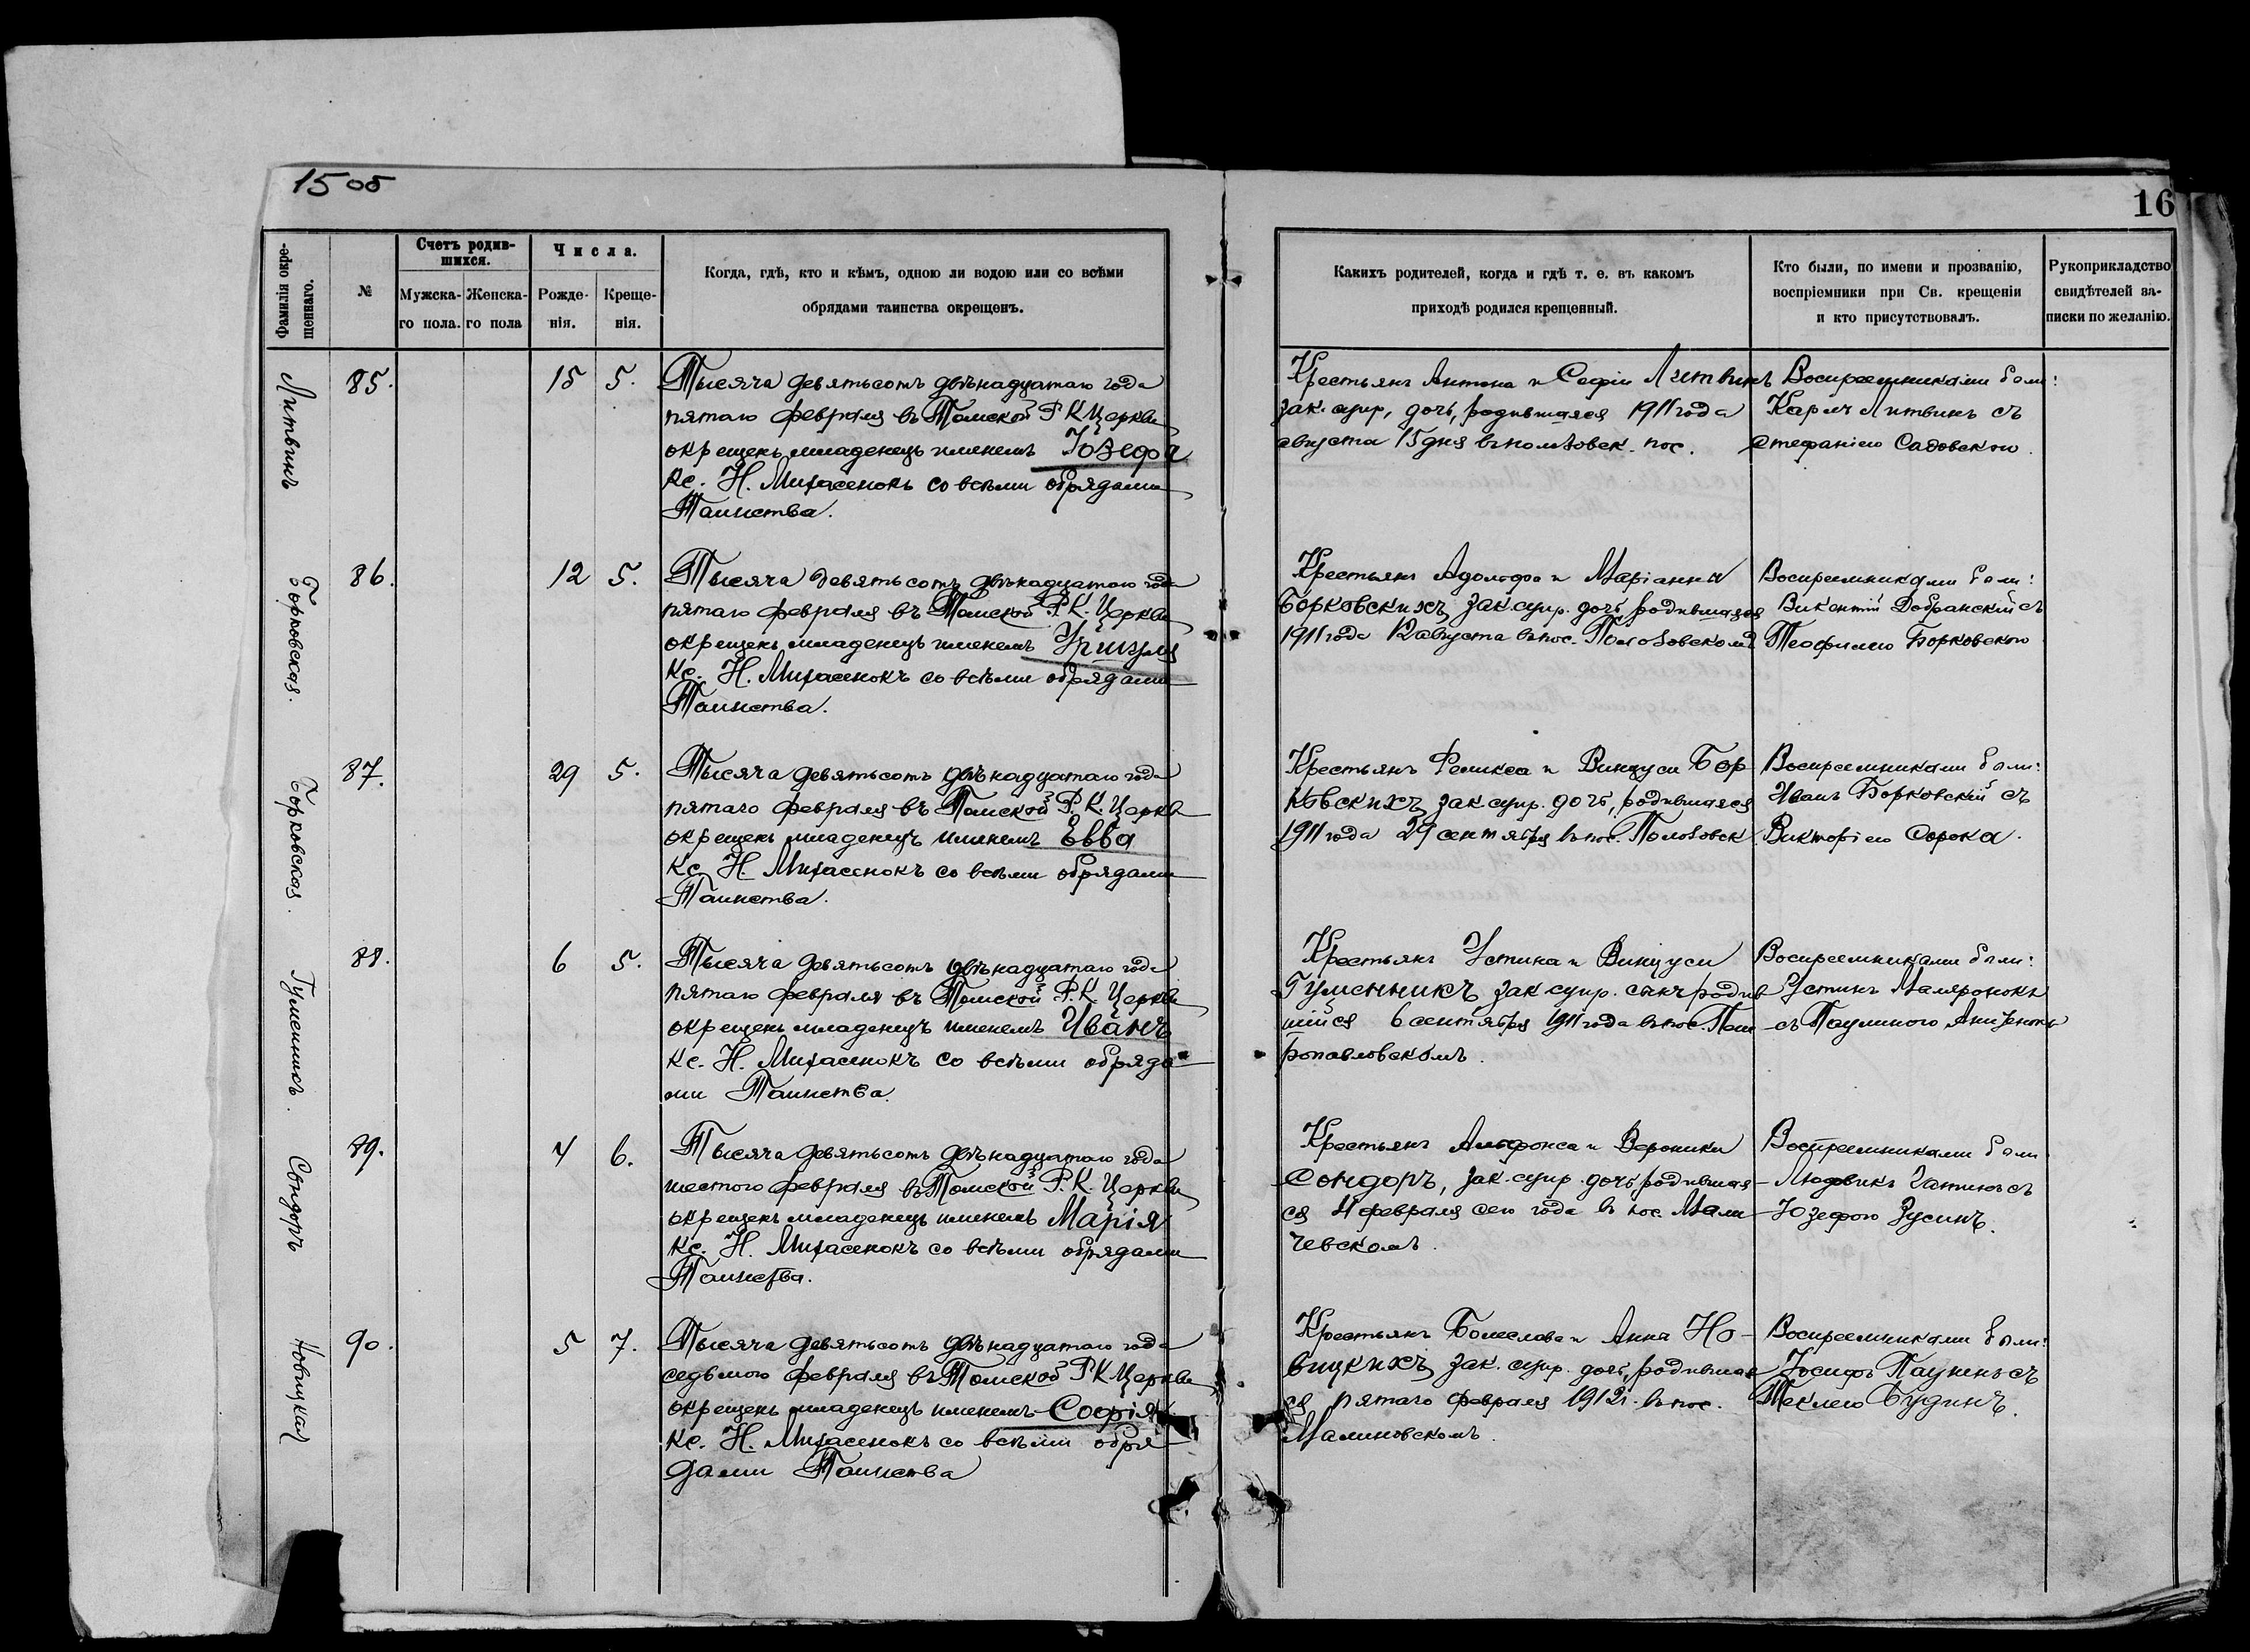 15 об
16
Фамилія окре-
щеннаго.
№
Счетъ родив-
шихся.
Мужска-
го пола.
Женска-
го пола
Числа.
Рожде-
нія.
Креще-
нія.
Когда, гдѣ, кто и кѣмъ, одною ли водою или со всѣми
обрядами таинства окрещенъ.
Какихъ родителей, когда и гдѣ т. е. въ какомъ
приходѣ родился крещенный.
Кто были, по имени и прозванію,
воспріемники при Св. крещеніи
и кто присутствовалъ.
Рукоприкладство
свидѣтелей за-
писки по желанію.
Литвинъ
85.
15 5.
Тысяча девятьсотъ двѣнадцатаго года
пятаго февраля въ Томской Р К Церкви
окрещенъ младенецъ именемъ Юзефа
Кс. Н. Михасенокъ со всѣми обрядами
Таинства.
Крестьянъ Антона и Софіи Литвинъ
зак. супр, дочь, родившаяся 1911 года
августа 15 дня въ полозовск. пос.
Воспреемниками были:
Карлъ Литвинъ съ
Стефаніею Садовскою.
Борковская.
86.
12 5.
Тысяча девятьсотъ двѣнадцатаго года
пятаго февраля въ Томской Р. К. Церкви
окрещенъ младенецъ именемъ Уршуля
Кс. Н. Михасенокъ со всѣми обрядами
Таинства.
Крестьянъ Адольфа и Маріанны
Борковскихъ, зак. супр. дочь, родившаяся
1911 года 12 августа въ пос. Полозовскомъ
Воспреемниками были:
Викентій Добранскій съ
Теофилею Борковскою
Борковская.
87.
29 5.
Тысяча девятьсотъ двѣнадцатаго года
пятаго февраля въ Томской Р. К. Церкви
окрещенъ младенецъ именемъ Евва
Кс. Н. Михасенокъ со всѣми обрядами
Таинства.
Крестьянъ Феликса и Винцуси Бор
ковскихъ, зак. супр. дочь, родившаяся
1911 года 29 сентября въ пос. Полозовск.
Воспреемниками были:
Иванъ Борковскій съ
Викторіею Сорока.
Гуменникъ.
88.
6 5.
Тысяча девятьсотъ двѣнадцатаго года
пятаго февраля въ Томской Р. К. Церкви
окрещенъ младенецъ именемъ Иванъ
Кс. Н. Михасенокъ со всѣми обряда
ми Таинства.
Крестьянъ Устина и Винцуси
Гуменникъ, зак. супр. сынъ родив
шійся 6 сентября 1911 года въ пос. Пет
ропавловскомъ.
Воспреемниками были:
Устинъ Маляронокъ
съ Паулиною
Сондоръ
89.
4 6.
Тысяча девятьсотъ двѣнадцатаго года
шестого февраля въ Томской Р. К. Церкви
окрещенъ младенецъ именемъ Марія
Кс. Н. Михасенокъ со всѣми обрядами
Таинства.
Крестьянъ Альфонса и Вероники
Сондоръ, зак. супр. дочь, родившая-
ся 4 февраля сего года въ пос. Мали-
чевскомъ.
Воспреемниками были
Людвикъ съ
Юзефою Зусинъ.
Новицкая
90.
5 7.
Тысяча девятьсотъ двѣнадцатаго года
седьмого февраля въ Томской Р. К. Церкви
окрещенъ младенецъ именемъ Софія
Кс. Н. Михасенокъ со всѣми обря-
дами Таинства
Крестьянъ Болеслава и Анны Но-
вицкихъ, зак. супр. дочь, родившая
ся пятаго февраля 1912 г. въ пос.
Малиновскомъ.
Воспреемниками были:
Іосифъ Паукинъ съ
Теклею Будинъ.